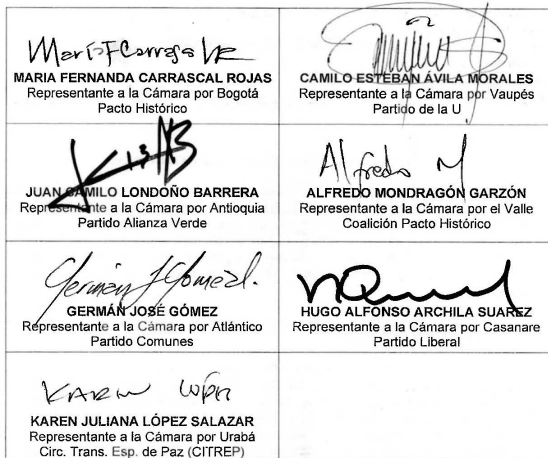 María F Carrasca
MARIA FERNANDA CARRASCAL ROJAS
Representante a la Cámara por Bogotá
Pacto Histórico
CAMILO ESTEBAN ÁVILA MORALES
Representante a la Cámara por Vaupés
Partido de la U
JUAN CAMILO LONDOÑO BARRERA
Representante a la Cámara por Antioquia
Partido Alianza Verde
Alfredo M
ALFREDO MONDRAGÓN GARZÓN
Representante a la Cámara por el Valle
Coalición Pacto Histórico
Germán J Gómez.
GERMÁN JOSÉ GÓMEZ
Representante a la Cámara por Atlántico
Partido Comunes
HUGO ALFONSO ARCHILA SUAREZ
Representante a la Cámara por Casanare
Partido Liberal
KAREN LÓPEZ
KAREN JULIANA LÓPEZ SALAZAR
Representante a la Cámara por Urabá
Circ. Trans. Esp. de Paz (CITREP)